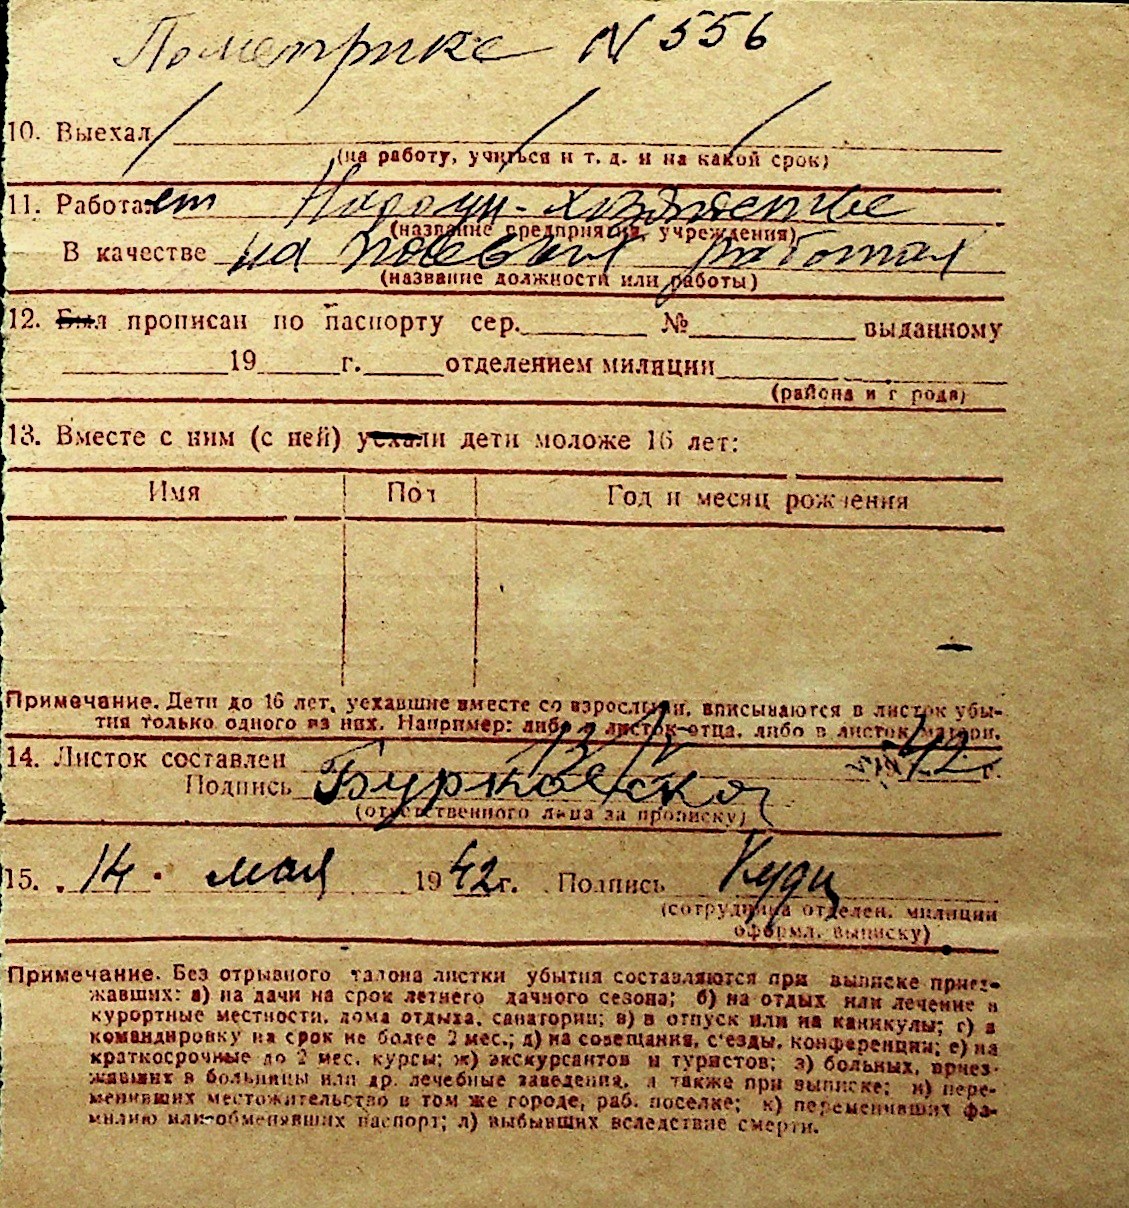 По метрике N 556
10. Выехал
(на работу, учиться и т. д. и на какой срок)
11. Работает
(название предприятия, учреждения)
В качестве на полевых работах
(название должности или работы)
12. Был прописан по паспорту сер. № выданному
19 г. отделением милиции
(района и города)
13. Вместе с ним (с ней) уехали дети моложе 16 лет:
Имя Пол Год и месяц рождения
Примечание. Дети до 16 лет, уехавшие вместе со взрослыми, вписываются в листок убы-
тия только одного из них. Например: либо в листок отца, либо в листок матери.
14. Листок составлен 13/V 1942 г.
Подпись
(ответственного лица за прописку)
15. 14 мая 1942 г. Подпись
(сотрудника отделен. милиции
оформл. выписку)
Примечание. Без отрывного талона листки убытия составляются при выписке приез-
жавших: а) на дачи на срок летнего дачного сезона; б) на отдых или лечение в
курортные местности, дома отдыха, санатории; в) в отпуск или на каникулы; г) в
командировку на срок не более 2 мес.; д) на совещания, с'езды, конференции; е) на
краткосрочные до 2 мес. курсы; ж) экскурсантов и туристов; з) больных, приез-
жавших в больницы или др. лечебные заведения, а также при выписке; и) пере-
менивших местожительство в том же городе, раб. поселке; к) переменивших фа-
милию или обменявших паспорт; л) выбывших вследствие смерти.